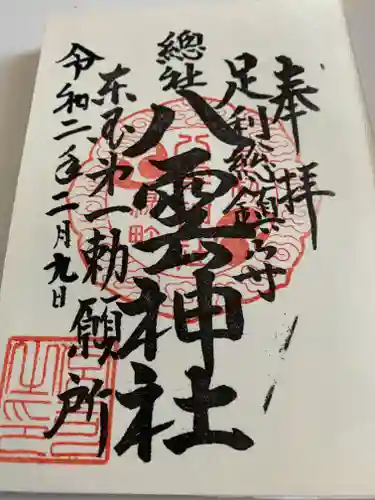 奉拝
足利総鎮守
總社
八雲神社
東国第一勅願所
令和二年二月九日